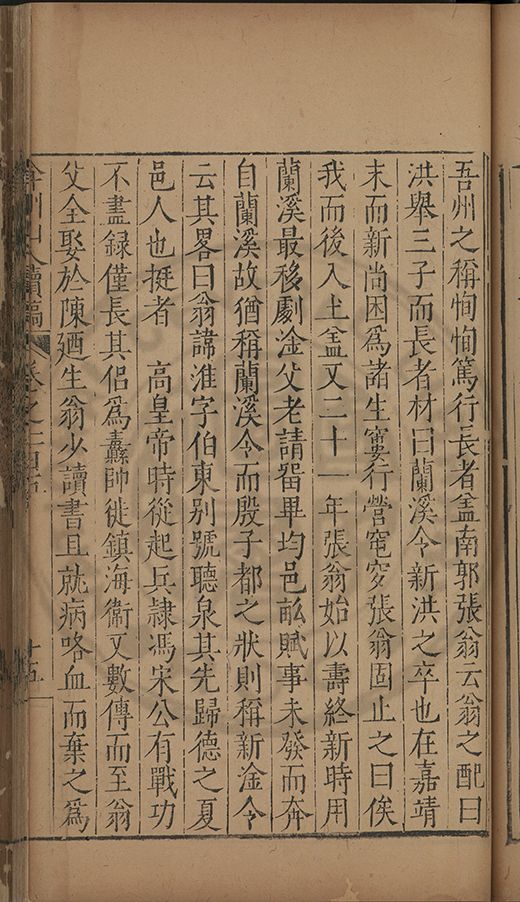 吾州之稱恂恂篤行長者盖南郭張翁云翁之配曰
洪舉三子而長者材曰蘭溪令新洪之卒也在嘉靖
末而新尚困爲諸生寠行營窀穸張翁固止之曰俟
我而後入土盖又二十一年張翁始以壽終新時用
蘭溪最移劇淦父老請畱畢均邑畝賦事未發而奔
自蘭溪故猶稱蘭溪令而殷子都之狀則稱新淦令
云其畧曰翁諱淮字伯東别號聽泉其先歸德之夏
邑人也挺者 高皇帝時從起兵隷馮宋公有戰功
不盡録僅長其侣爲纛帥徙鎮海衞又數傳而至翁
父全娶於陳廼生翁少讀書且就病咯血而棄之爲
弇州山人續稿 卷之一百 十五